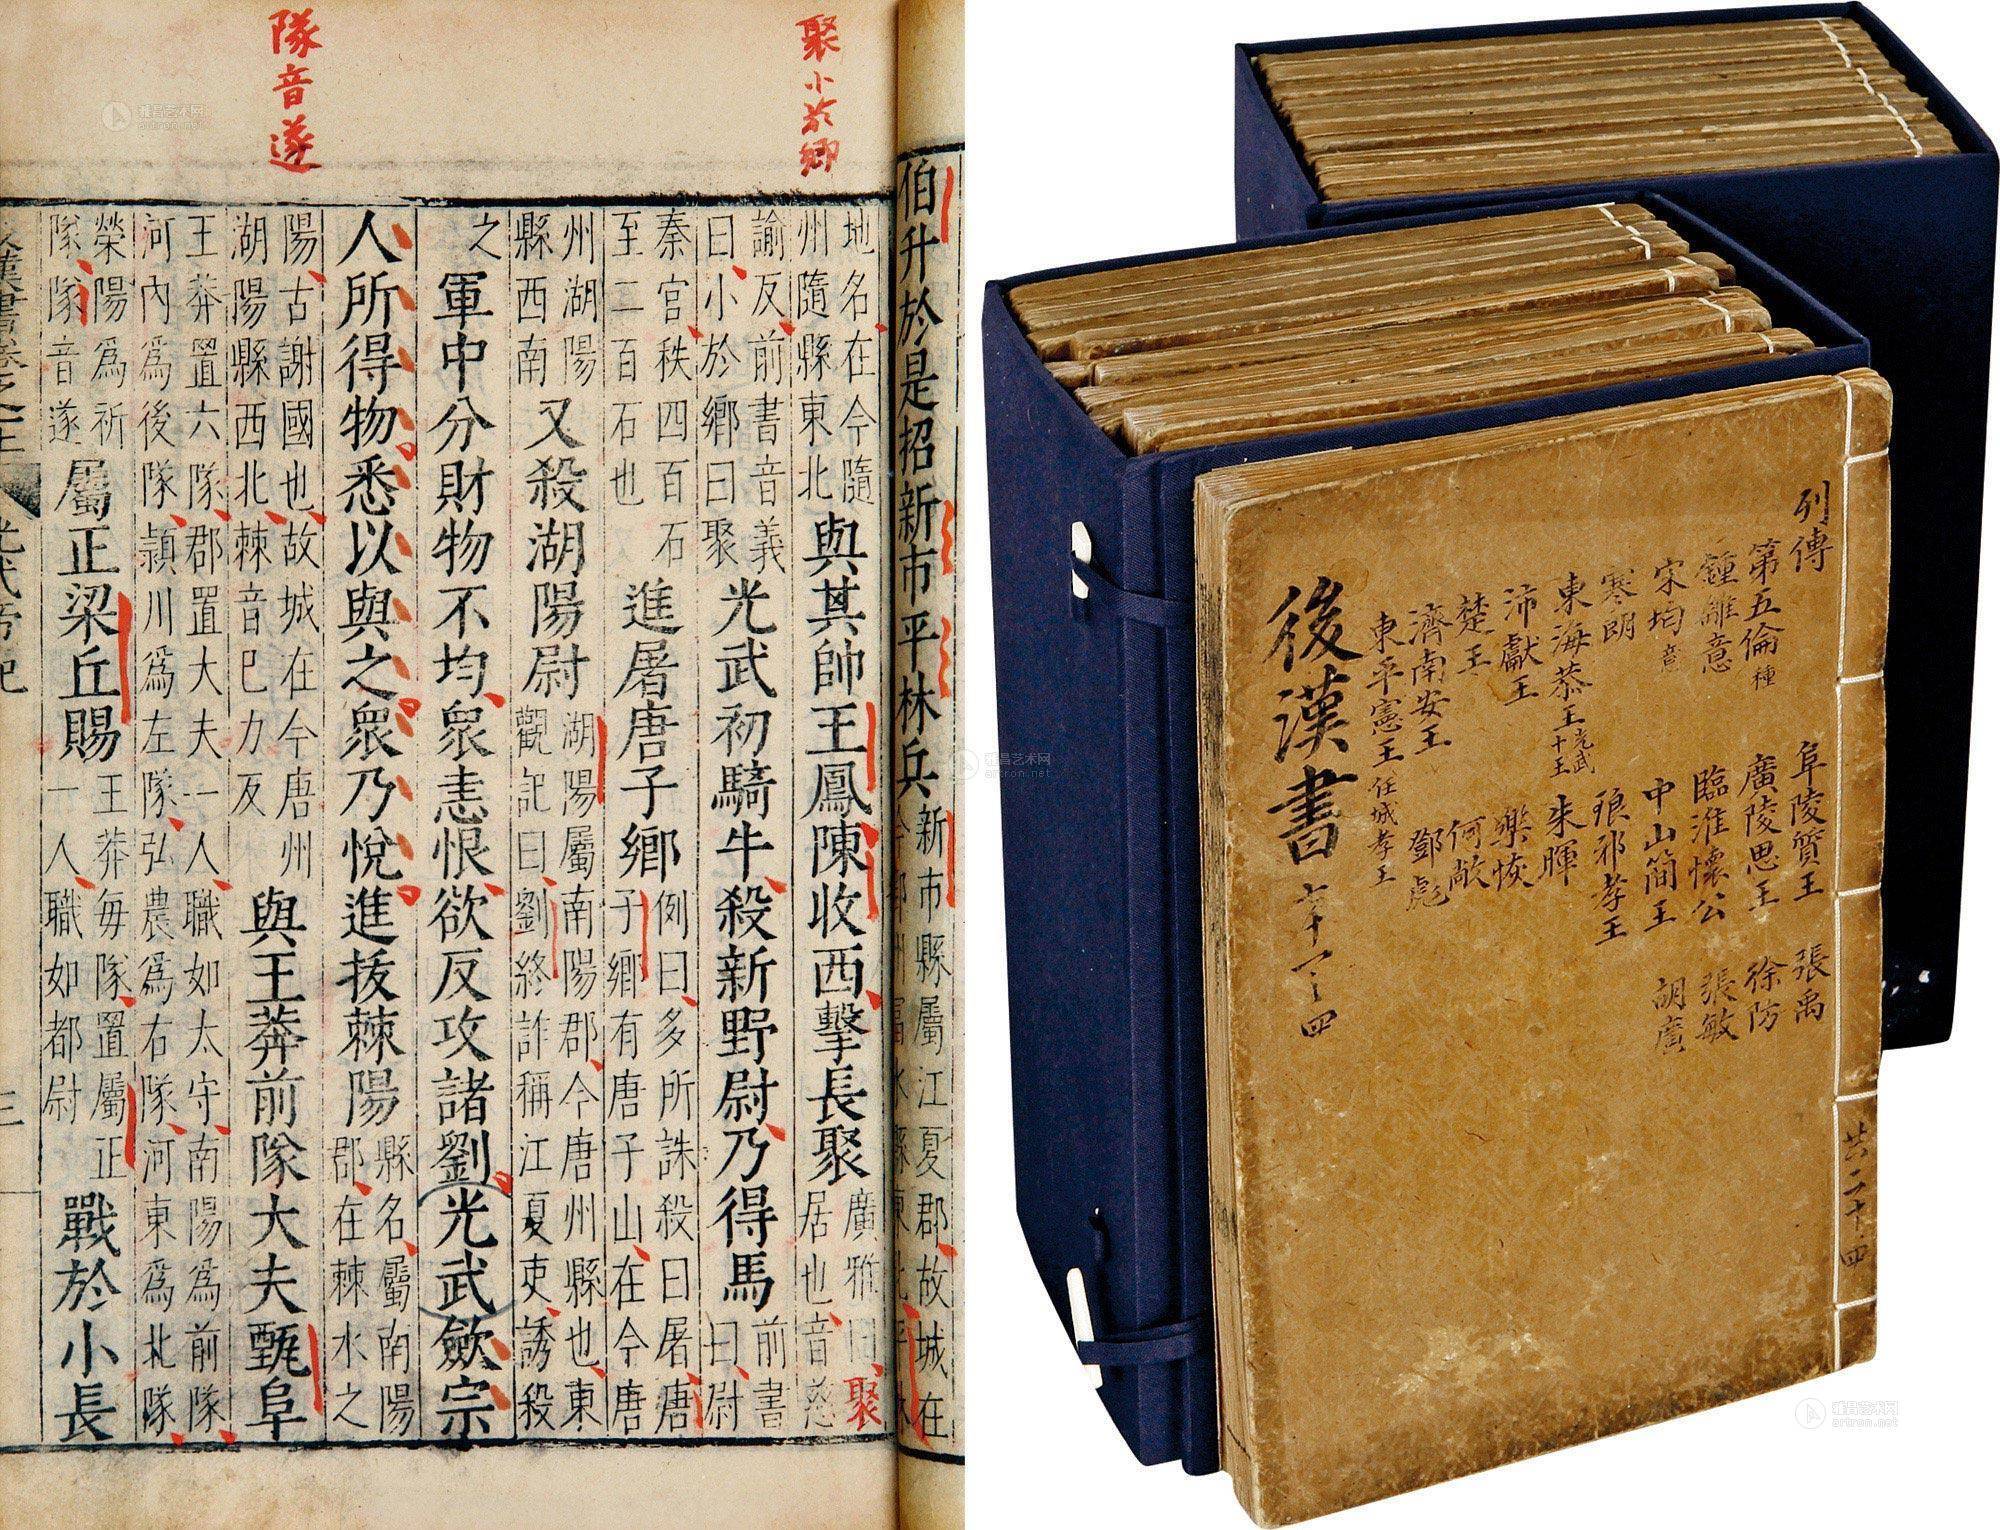 聚小於鄉
隊音遂
伯升於是招新市平林兵
新市縣屬江夏郡故城在
地名在今隨
州隨縣東北
與其帥王鳳陳收西擊長聚
廣雅曰聚
居也音慈
諭反前書音義
曰小於鄉曰聚
光武初騎牛殺新野尉乃得馬
前書
曰尉
秦官秩四百石
至二百石也
進屠唐子鄉
例曰多所誅殺曰屠唐
子鄉有唐子山在今唐
州湖陽
縣西南
又殺湖陽尉
湖陽屬南陽郡今唐州縣也東
觀記曰劉終詐稱江夏吏誘殺
之
軍中分財物不均衆恚恨欲反攻諸劉光武歛宗
人所得物悉以與之衆乃悅進拔棘陽
縣名屬南陽
郡在棘水之
陽古謝國也故城在今唐州
湖陽縣西北棘音己力反
與王莽前隊大夫甄阜
王莽置六隊郡置大夫一人職如太守南陽為前隊
河內為後隊潁川為左隊弘農為右隊河東為北隊
滎陽為祈
隊隊音遂
屬正梁丘賜
王莽每隊置屬正
一人職如都尉
戰於小長
光武帝紀
三
列傳
第五倫種
鍾離意
宋均意
寒朗
東海恭王光武十王
沛獻王
楚王
濟南安王
東平憲王任城孝王
阜陵質王
廣陵思王
臨淮懷公
中山簡王
琅邪孝王
朱暉
樂恢
何敞
鄧彪
張禹
徐防
張敏
胡廣
後漢書
共二十四
雅昌艺术网
artron.net
雅昌艺术网
artron.net
雅昌艺术网
artron.net